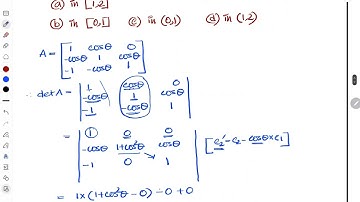 (a) in [1,2]
(b) in [0,1] (c) in (0,1) (d) in (1,2)
A = [ 1 cosθ 0
-cosθ 1 cosθ
-1 -cosθ 1 ]
∴ detA = | 1 cosθ 0
-cosθ 1 cosθ
-1 -cosθ 1 |
= | 1 0 0
-cosθ 1+cos²θ cosθ
-1 0 1 | [c₂' = c₂ - cosθ×c₁]
= 1×(1+cos²θ-0) - 0 + 0